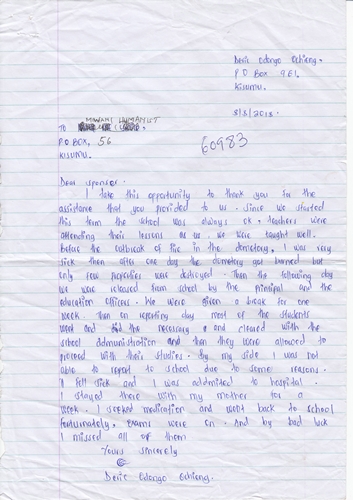 Deric Odongo Ochieng.
P O Box 961,
Kisumu.
8/8/2018.
TO MWANI HUMANIST
P.O BOX, 56
KISUMU.
60983
Dear sponsor.
I take this opportunity to thank you for the
assistance that you provided to us. Since we started
this term the school was always ok. teachers were
attending their lessons as us, we were taught well.
Before the outbreak of fire in the dometory, I was very
sick then after one day the dometory got burned but
only few properties were destroyed. Then the following day
we were released from school by the principal and the
education officers. We were given a break for one
week. Then on reporting day most of the students
went and did the necessary and cleared with the
school admunistration and then they were allowed to
proceed with their studies. By my side I was not
able to report to school due to some reasons.
I fell sick and I was addmited to hospital.
I stayed there with my mother for a
week. I seeked medication and went back to school
fortunately, exams were on. And by bad luck
I missed all of them
Yours sincerely
Deric Odongo Ochieng.